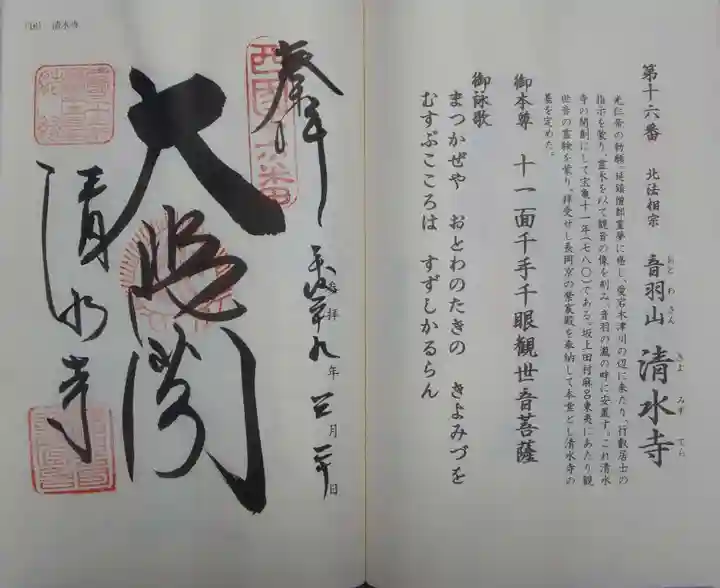 第十六番 北法相宗 音羽山 清水寺
おとわさん きよみずてら
光仁帝の勅願。延鎮僧都霊夢に感じ、愛宕木津川の辺に来たり、行叡居士の
指示を蒙り、霊木を以て観音の像を刻み、音羽の瀧の畔に安置す。これ清水
寺の開創にして宝亀十一年(七八〇)である。坂上田村麻呂東夷にあたり観
世音の霊験を蒙り、拝受せし長岡京の紫宸殿を奉納して本堂とし清水寺の
基を定めた。
御本尊 十一面千手千眼観世音菩薩
御詠歌
まつかぜや おとわのたきの きよみづを
むすぶこころは すずしかるらん
奉拝
参拝 年 月 日
大悲閣
清水寺
清水寺